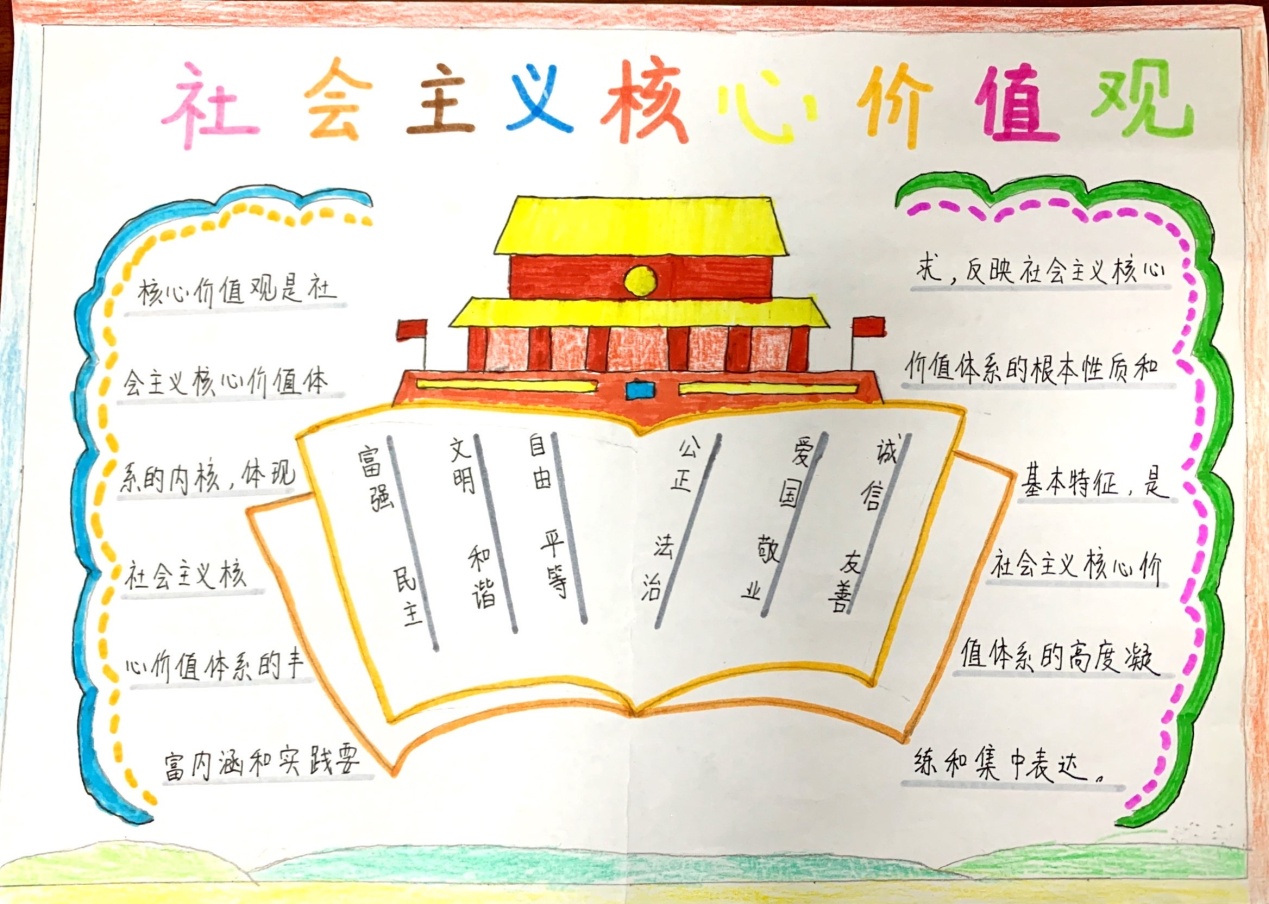 社会主义核心价值观
核心价值观是社
会主义核心价值体
系的内核，体现
社会主义核
心价值体系的丰
富内涵和实践要
富强 民主
文明 和谐
自由 平等
公正 法治
爱国 敬业
诚信 友善
求，反映社会主义核心
价值体系的根本性质和
基本特征，是
社会主义核心价
值体系的高度凝
练和集中表达。